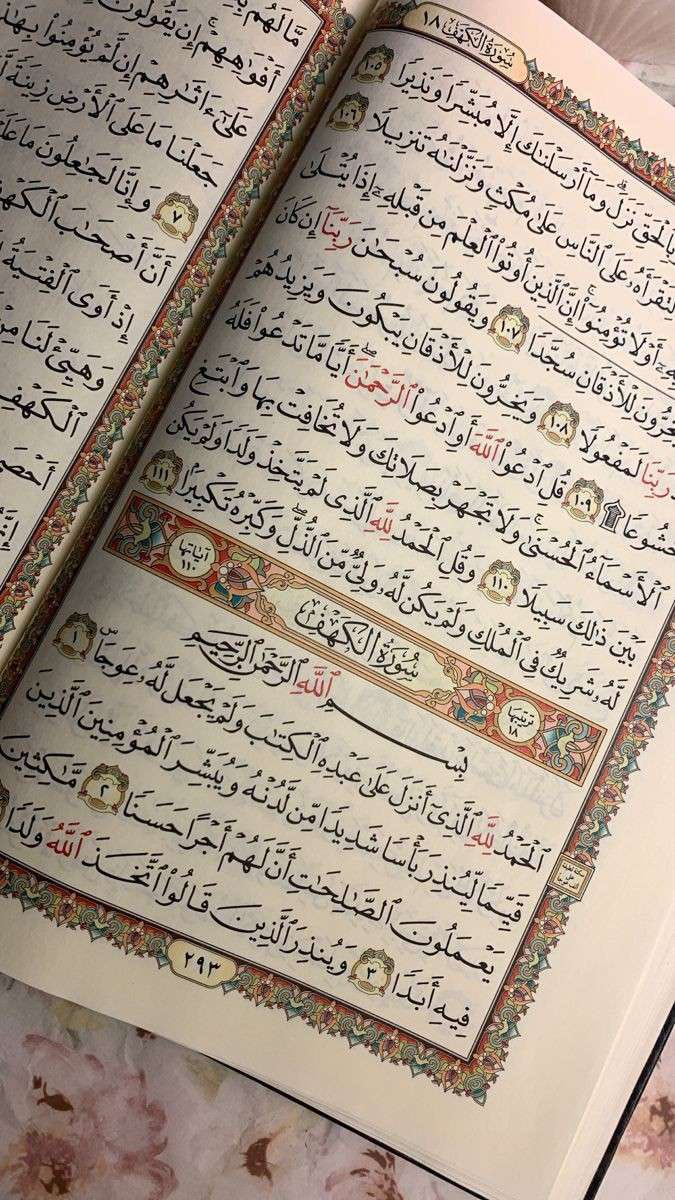 سُورَةُ الكَهْفِ ١٨
بِالْحَقِّ نَزَلَ ۗ وَمَآ أَرْسَلْنَٰكَ إِلَّا مُبَشِّرًا وَنَذِيرًا ١٠٥
لِتَقْرَأَهُۥ عَلَى النَّاسِ عَلَىٰ مُكْثٍ وَنَزَّلْنَٰهُ تَنزِيلًا ١٠٦
بِهِۦٓ أَوْ لَا تُؤْمِنُوٓا۟ ۚ إِنَّ الَّذِينَ أُوتُوا۟ الْعِلْمَ مِن قَبْلِهِۦٓ إِذَا يُتْلَىٰ
يَخِرُّونَ لِلْأَذْقَانِ سُجَّدًا ١٠٧ وَيَقُولُونَ سُبْحَٰنَ رَبِّنَآ إِن كَانَ
رَبِّنَا لَمَفْعُولًا ١٠٨ وَيَخِرُّونَ لِلْأَذْقَانِ يَبْكُونَ وَيَزِيدُهُمْ
خُشُوعًا ۩ ١٠٩ قُلِ ادْعُوا۟ اللَّهَ أَوِ ادْعُوا۟ الرَّحْمَٰنَ ۖ أَيًّا مَّا تَدْعُوا۟ فَلَهُ
الْأَسْمَآءُ الْحُسْنَىٰ ۚ وَلَا تَجْهَرْ بِصَلَاتِكَ وَلَا تُخَافِتْ بِهَا وَابْتَغِ
بَيْنَ ذَٰلِكَ سَبِيلًا ١١٠ وَقُلِ الْحَمْدُ لِلَّهِ الَّذِى لَمْ يَتَّخِذْ وَلَدًا وَلَمْ يَكُن
لَّهُۥ شَرِيكٌ فِى الْمُلْكِ وَلَمْ يَكُن لَّهُۥ وَلِىٌّ مِّنَ الذُّلِّ ۖ وَكَبِّرْهُ تَكْبِيرًۢا ١١١
ترتيبها ١٨ سُورَةُ الكَهْفِ آياتها ١١٠
بِسْمِ اللَّهِ الرَّحْمَٰنِ الرَّحِيمِ
الْحَمْدُ لِلَّهِ الَّذِىٓ أَنزَلَ عَلَىٰ عَبْدِهِ الْكِتَٰبَ وَلَمْ يَجْعَل لَّهُۥ عِوَجًاۜ ١
قَيِّمًا لِّيُنذِرَ بَأْسًا شَدِيدًا مِّن لَّدُنْهُ وَيُبَشِّرَ الْمُؤْمِنِينَ الَّذِينَ
يَعْمَلُونَ الصَّٰلِحَٰتِ أَنَّ لَهُمْ أَجْرًا حَسَنًا ٢ مَّٰكِثِينَ
فِيهِ أَبَدًا ٣ وَيُنذِرَ الَّذِينَ قَالُوا۟ اتَّخَذَ اللَّهُ وَلَدًا
٢٩٣
مَّا لَهُم بِهِ
أَفْوَٰهِهِمْ ۚ إِن يَقُولُونَ
عَلَىٰٓ ءَاثَٰرِهِمْ إِن لَّمْ يُؤْمِنُوا۟ بِهَٰذَا
جَعَلْنَا مَا عَلَى الْأَرْضِ زِينَةً
٧ وَإِنَّا لَجَٰعِلُونَ مَا عَلَ
أَنَّ أَصْحَٰبَ الْكَهْفِ
إِذْ أَوَى الْفِتْيَةُ
وَهَيِّئْ لَنَا مِنْ
الْكَهْفِ
أَحْصَىٰ
إِنَّهُ